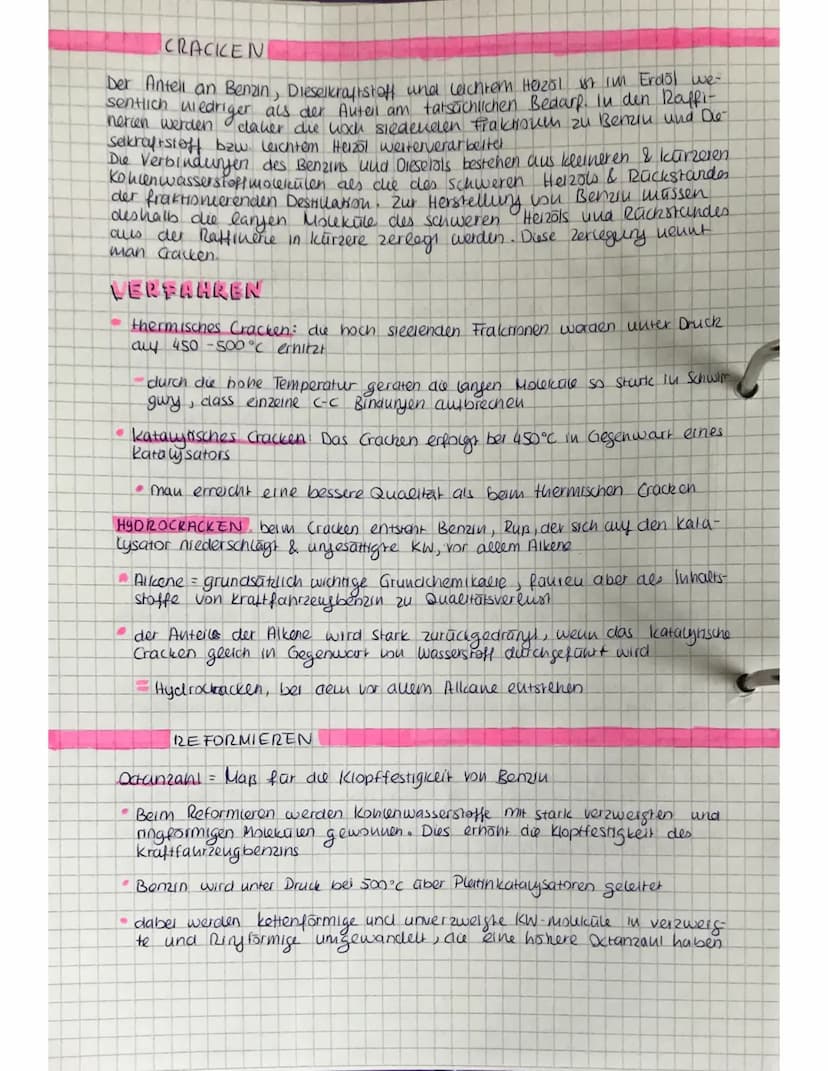 CRACKEN
Der Anteil an Benzin, Dieselkraftstoff und leichtem Heizöl ist im Erdöl we-
sentlich niedriger als der Anteil am tatsächlichen Bedarf. In den Raffi-
nerien werden daher die hoch siedenden Fraktionen zu Benzin und Die-
selkraftstoff bzw leichtem Heizöl weiterverarbeitet
Die Verbindungen des Benzins und Dieselöls bestehen aus kleineren & kürzeren
Kohlenwasserstoffmolekülen als die des schweren Heizöls & Rückstandes
der fraktionierenden Destillation. Zur Herstellung von Benzin müssen
deshalb die langen Moleküle des schweren Heizöls und Rückstandes
aus der Raffinerie in kürzere zerlegt werden. Diese Zerlegung nennt
man Cracken.
VERFAHREN
• thermisches Cracken: die hoch siedenden Fraktionen werden unter Druck
auf 450-500°C erhitzt
- durch die hohe Temperatur geraten die langen Moleküle so stark in Schwin
gung, dass einzelne C-C Bindungen aufbrechen
• katalytisches Cracken: Das Cracken erfolgt bei 450°C in Gegenwart eines
Katalysators
• man erreicht eine bessere Qualität als beim thermischen Cracken
HYDROCRACKEN: beim Cracken entsteht Benzin, Ruß, der sich auf den Kata-
lysator niederschlägt & ungesättigte KW, vor allem Alkene
• Alkene = grundsätzlich wichtige Grundchemikalie, führen aber als Inhalts-
stoffe von Kraftfahrzeugbenzin zu Qualitätsverlust
• der Anteil der Alkene wird stark zurückgedrängt, wenn das katalytische
Cracken gleich in Gegenwart von Wasserstoff durchgeführt wird
= Hydrocracken, bei dem vor allem Alkane entstehen
REFORMIEREN
Octanzahl = Maß für die Klopffestigkeit von Benzin
• Beim Reformieren werden Kohlenwasserstoffe mit stark verzweigten und
ringförmigen Molekülen gewonnen. Dies erhöht die Klopffestigkeit des
Kraftfahrzeugbenzins
• Benzin wird unter Druck bei 500°C über Platinkatalysatoren geleitet
• dabei werden kettenförmige und unverzweigte KW-Moleküle in verzweig-
te und Ringförmige umgewandelt, die eine höhere Octanzahl haben